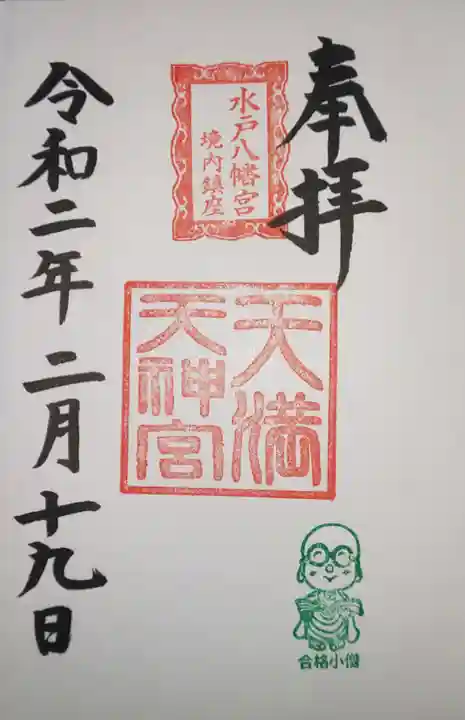 奉拝
水戸八幡宮
境内鎮座
天満
天神宮
合格小僧
令和二年二月十九日